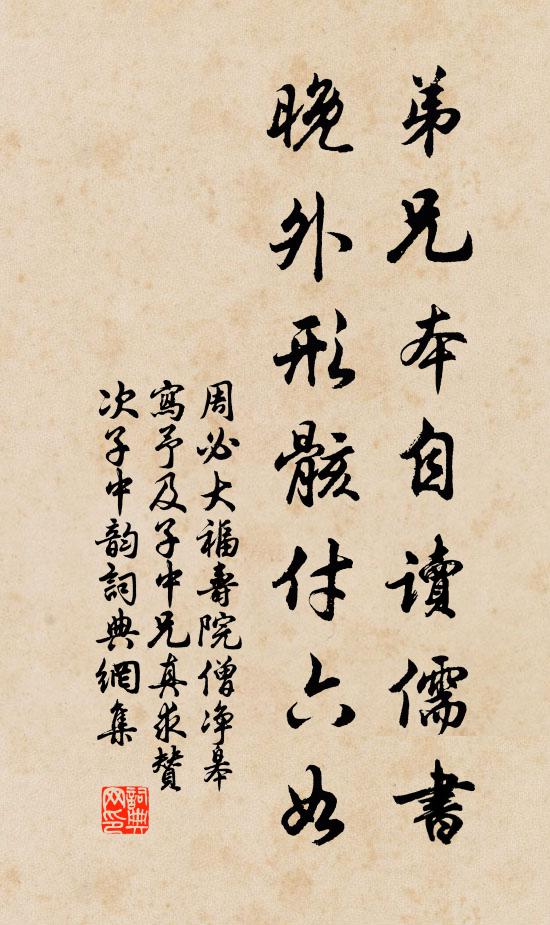 弟兄本自讀儒書
晚外形骸付六如
周必大福壽院僧净皋
寫予及子中兄真求贊
次子中韵詞典網集
詞典
网印